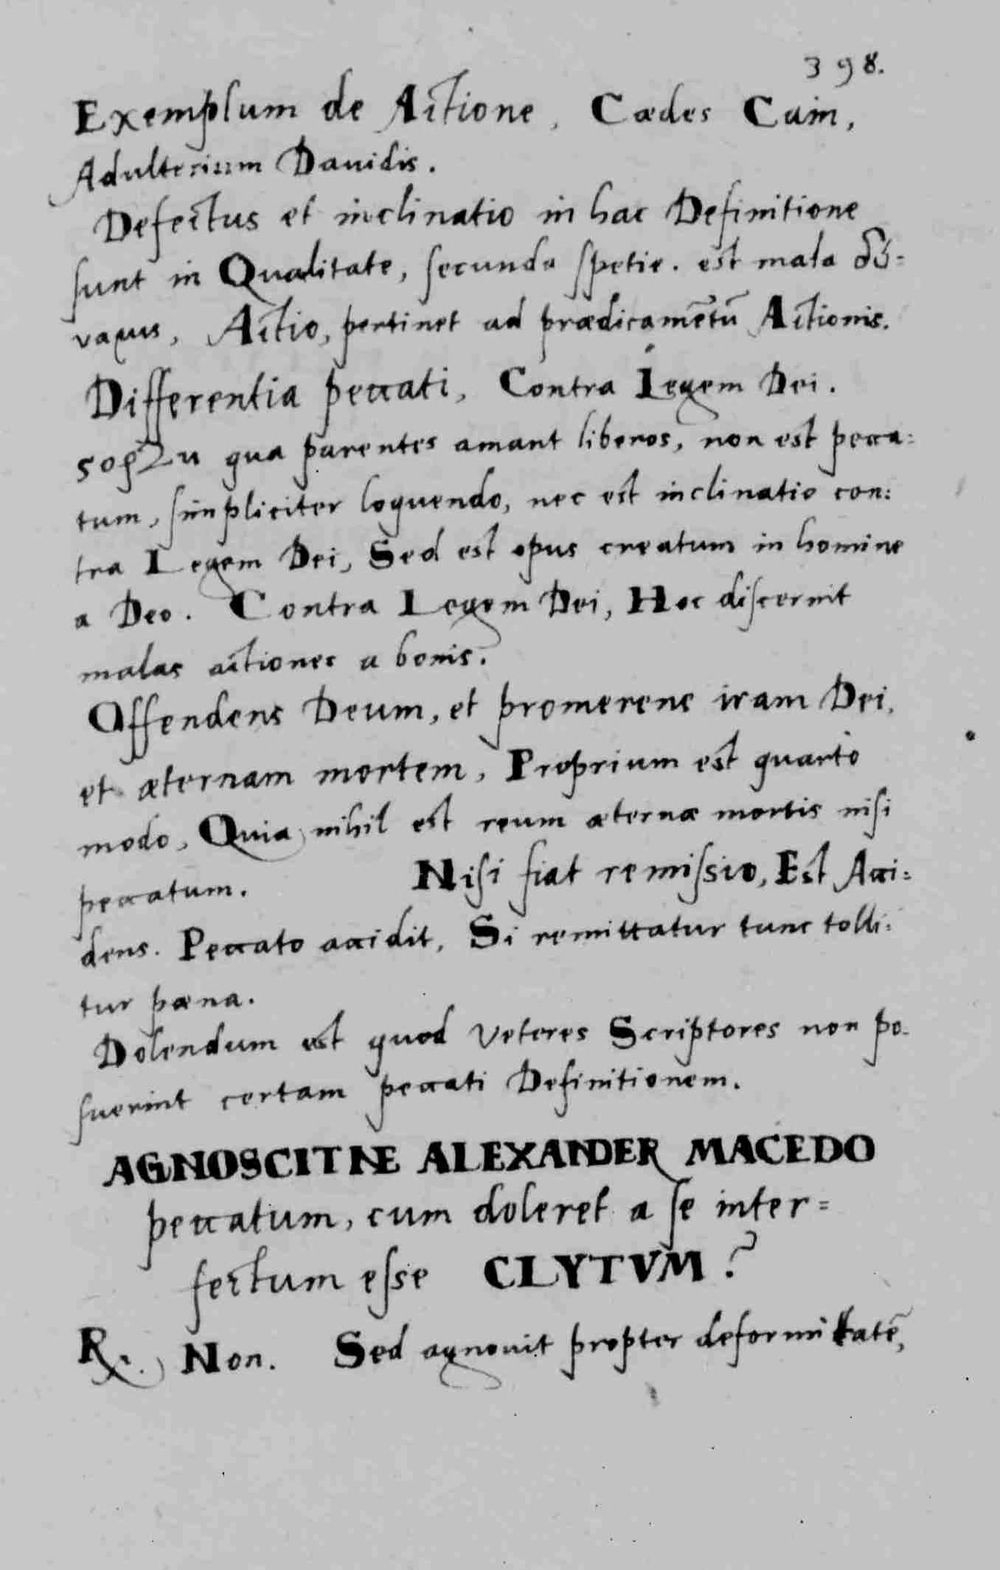 398.
Exemplum de Actione, Cædes Cain,
Adulterium Dauidis.
Defectus et inclinatio in hac Definitione
sunt in Qualitate, secunda spetie. est mala δύ-
ναμις, Actio, pertinet ad prædicamētū Actionis.
Differentia peccati, Contra Legem Dei.
ςοργὴ qua parentes amant liberos, non est pecca:
tum, simpliciter loquendo, nec est inclinatio con:
tra Legem Dei, Sed est opus creatum in homine
a Deo. Contra Legem Dei, Hoc discernit
malas actiones a bonis.
Offendens Deum, et promerens iram Dei,
et æternam mortem, Proprium est quarto
modo, Quia nihil est reum æternæ mortis nisi
peccatum. Nisi fiat remissio, Est Acci:
dens. Peccato accidit, Si remittatur tunc tolli:
tur pæna.
Dolendum est quod Veteres Scriptores non po-
suerint certam peccati Definitionem.
AGNOSCITNE ALEXANDER MACEDO
peccatum, cum doleret a se inter=
fectum esse CLYTVM?
R. Non. Sed agnouit propter deformitatē,